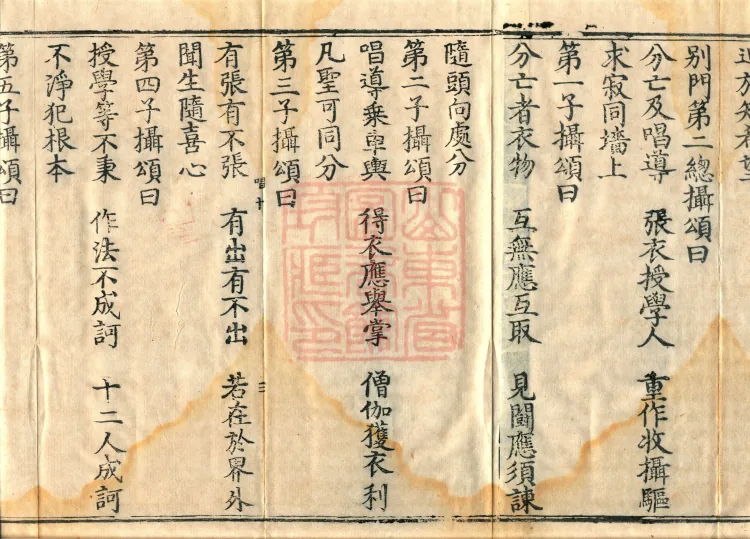 別門第二總攝頌曰
分亡及唱導 張衣授學人 重作收攝驅
求寂同墻上
第一子攝頌曰
分亡者衣物 互無應互取 見闘應須諫
隨頭向處分
第二子攝頌曰
唱導乘車輿 得衣應舉掌 僧伽獲衣利
凡聖可同分
第三子攝頌曰
有張有不張 有出有不出 若在於界外
聞生隨喜心
第四子攝頌曰
授學等不秉 作法不成訶 十二人成訶
不淨犯根本
第五子攝頌曰